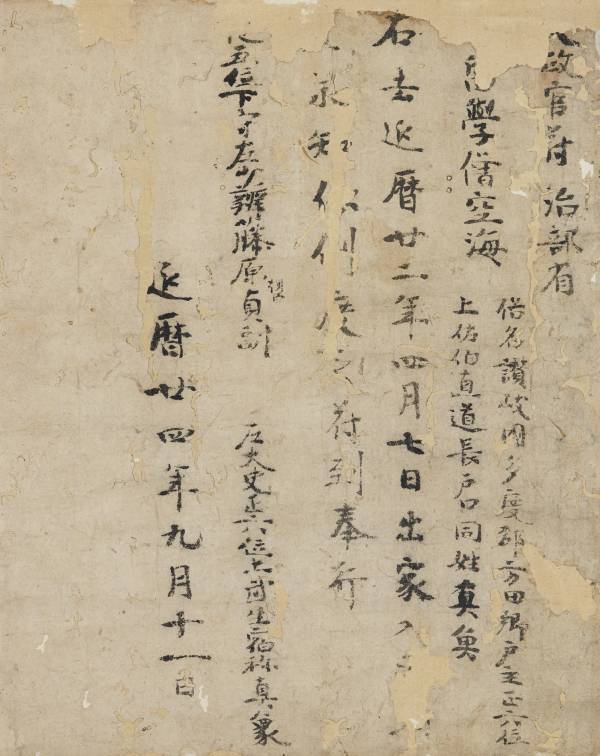 政官符 治部省
學僧空海
俗名讚岐國多度郡方田郷戸主正六位
上佐伯直道長戸口同姓真魚
右去延暦廿二年四月七日出家入
承知依例度之符到奉行
五位下守左少辨藤原貞副
左大史正六位上武生宿祢真象
延暦廿四年九月十一日